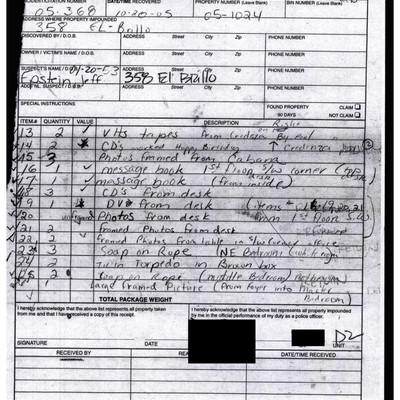 IDENTIFICATION NUMBER DATE/TIME RECEIVED PROPERTY NUMBER (Leave Blank) BIN NUMBER (Leave Blank)
05-368 10-20-05 05-1024
ADDRESS WHERE PROPERTY IMPOUNDED
358 EL-Brillo
DISCOVERED BY / D.O.B. ADDRESS Street City Zip PHONE NUMBER
OWNER / VICTIM'S NAME / D.O.B. ADDRESS Street City Zip PHONE NUMBER
SUSPECT'S NAME / D.O.B. 01-20-53 ADDRESS Street City Zip PHONE NUMBER
Epstein, Jeff 358 El Brillo
ADD'NL. SUSPECT / D.O.B. ADDRESS Street City Zip PHONE NUMBER
SPECIAL INSTRUCTIONS FOUND PROPERTY CLAIM
90 DAYS NOT CLAIM
ITEM# QUANTITY VALUE DESCRIPTION
13 2 VHS tapes from Credenza By
14 2 CD's marked Happy Birthday Credenza
15 3 Photos framed from Cabana
16 1 message book 1st Floor S/W corner
17 message book (from inside)
3 CD's from desk
19 1 DVD from desk (items
20 Photos from desk from 1st Floor S.W.
21 2 framed Photos from desk
22 framed Photos from table in S/W corner office
3 Soap on Rope (NE Bedroom
2 Twin Torpedo in Brown box
2 Soap on Rope (middle Bedroom) Bathroom
Large framed Picture (from Foyer into Master
Bedroom)
TOTAL PACKAGE WEIGHT
I hereby acknowledge that the above list represents all property taken from me and that I have received a copy of this receipt.
I hereby acknowledge that the above list represents all property impounded by me in the official performance of my duty as a police officer.
SIGNATURE DATE UNIT
RECEIVED BY DATE/TIME RECEIVED DATE/TIME RECEIVED